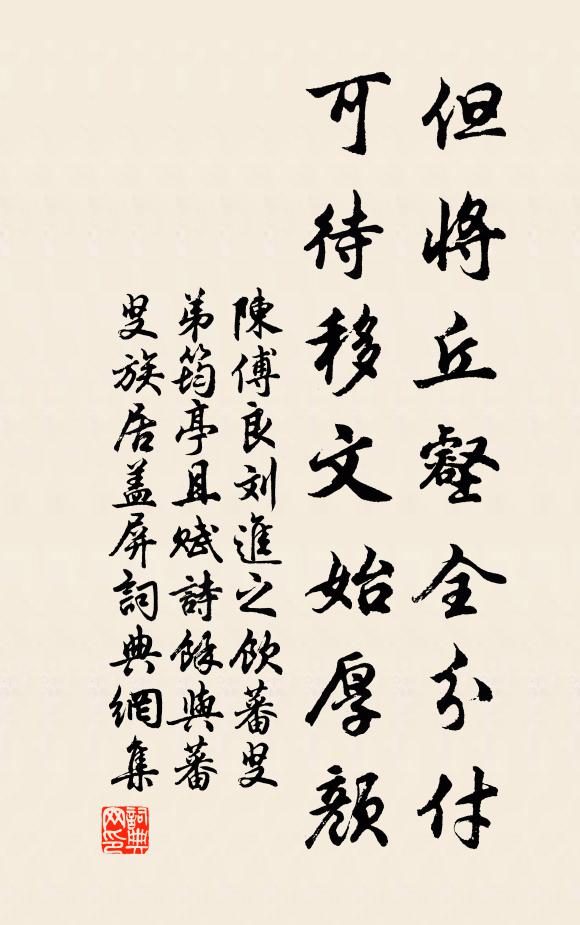 但將丘壑全分付
可待移文始厚顏
陳傅良刘進之飲蕃叟
弟筠亭且賦詩餘與蕃
叟族居盖屏詞典網集
詞典网印